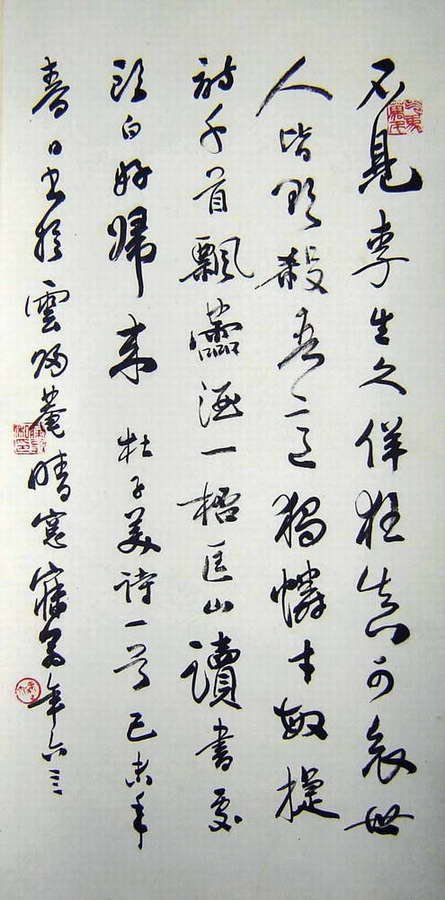 不見李生久佯狂真可哀世
人皆欲殺吾意獨憐才敏捷
詩千首飄蘦酒一桮匡山讀書處
頭白好歸來 杜子美詩一首己未年
春日書於雲歸菴晴窓年六三